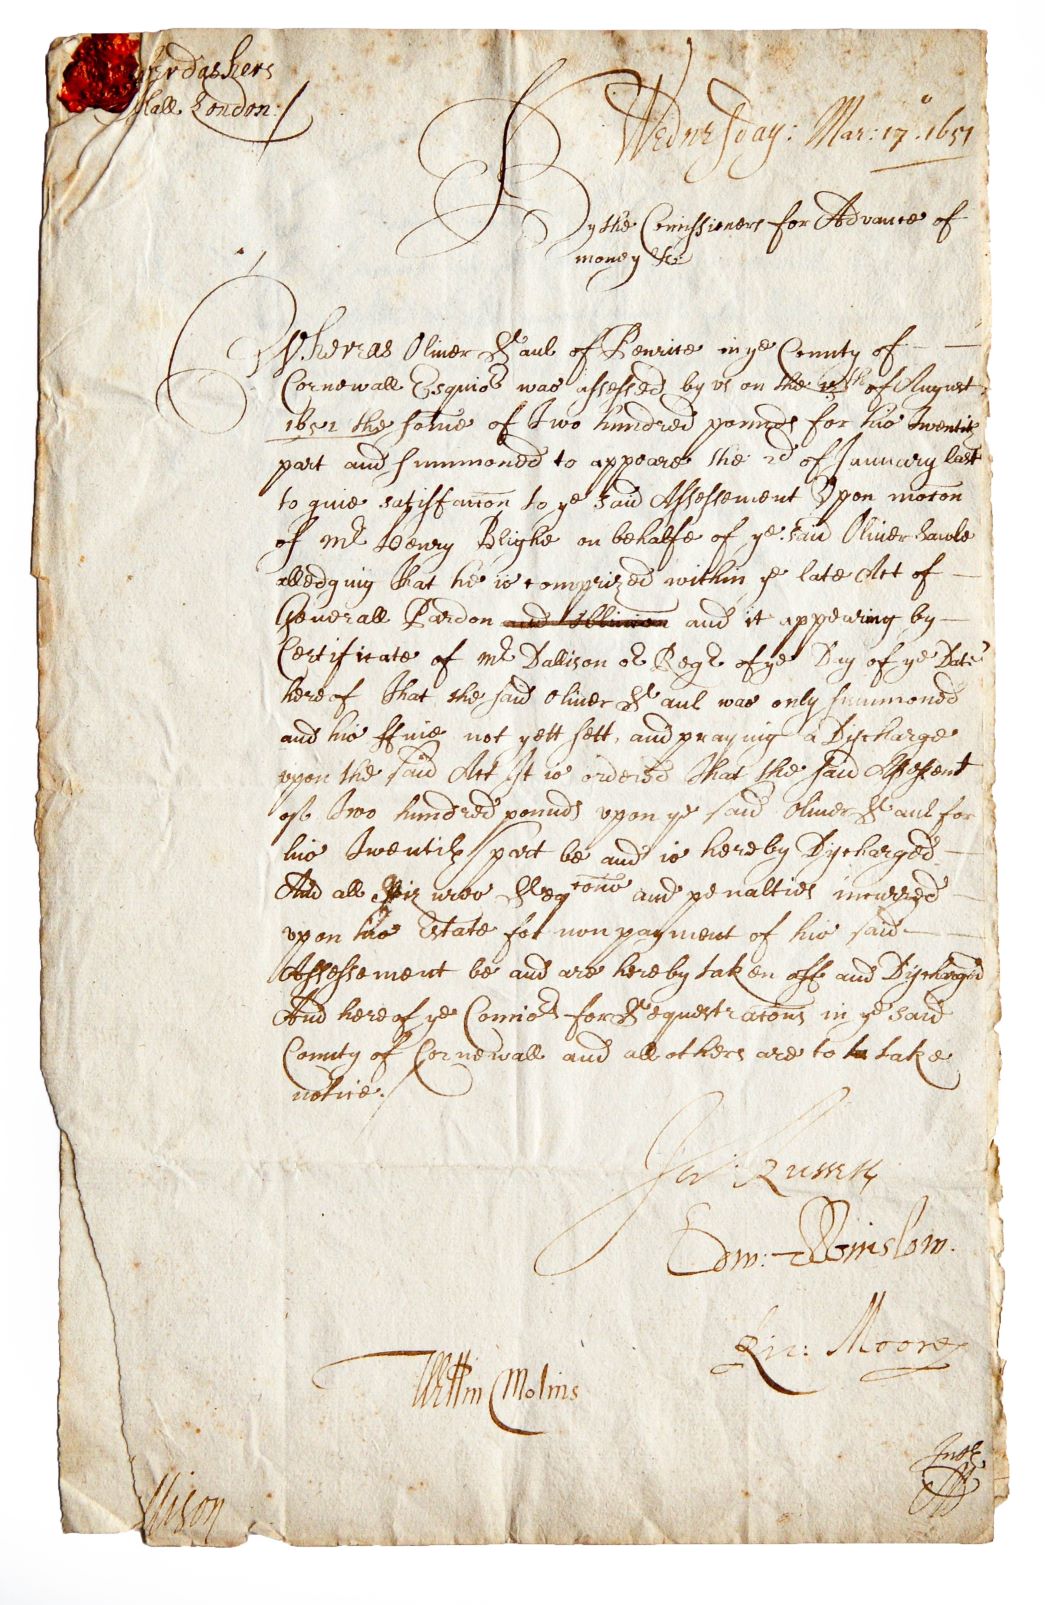 Haberdashers
Hall London:/
Wednesday: Mar: 17º. 1651
By the Comissioners for Advance of
money &c
Whereas Oliver Saul of Penrice in ye County of
Cornewall Esquior was assessed by vs on the th of August
1651 the some of Two hundred pounds for his Twentith
part and summoned to appeare the 2d of January last
to giue satisfaccon to ye said Assessement Vpon mocon
of Mr Henry Blighe on behalfe of ye said Oliver Sawle
alledging That he is comprized within ye late Act of
Generall Pardon and Oblivion and it appearing by
Certificate of Mr Dallison or Regr of ye Day of ye Date
hereof That the said Oliver Saul was only summoned
and his ffine not yett sett, and praying a Discharge
vpon the said Act It is ordered That the said Assessemt
of Two hundred pounds vpon ye said Oliver Saul for
his Twentith part be and is hereby Discharged
And all Seqcons and penalties incurred
vpon his Estate for non payment of his said
Assessement be and are hereby taken off and Discharged
And hereof ye Comiors for Sequestracons in ye said
County of Cornewall and all others are to take
notice./
Jo: Russell
Edw: Winslow.
Ric: Moore
Willm Molins
Intr